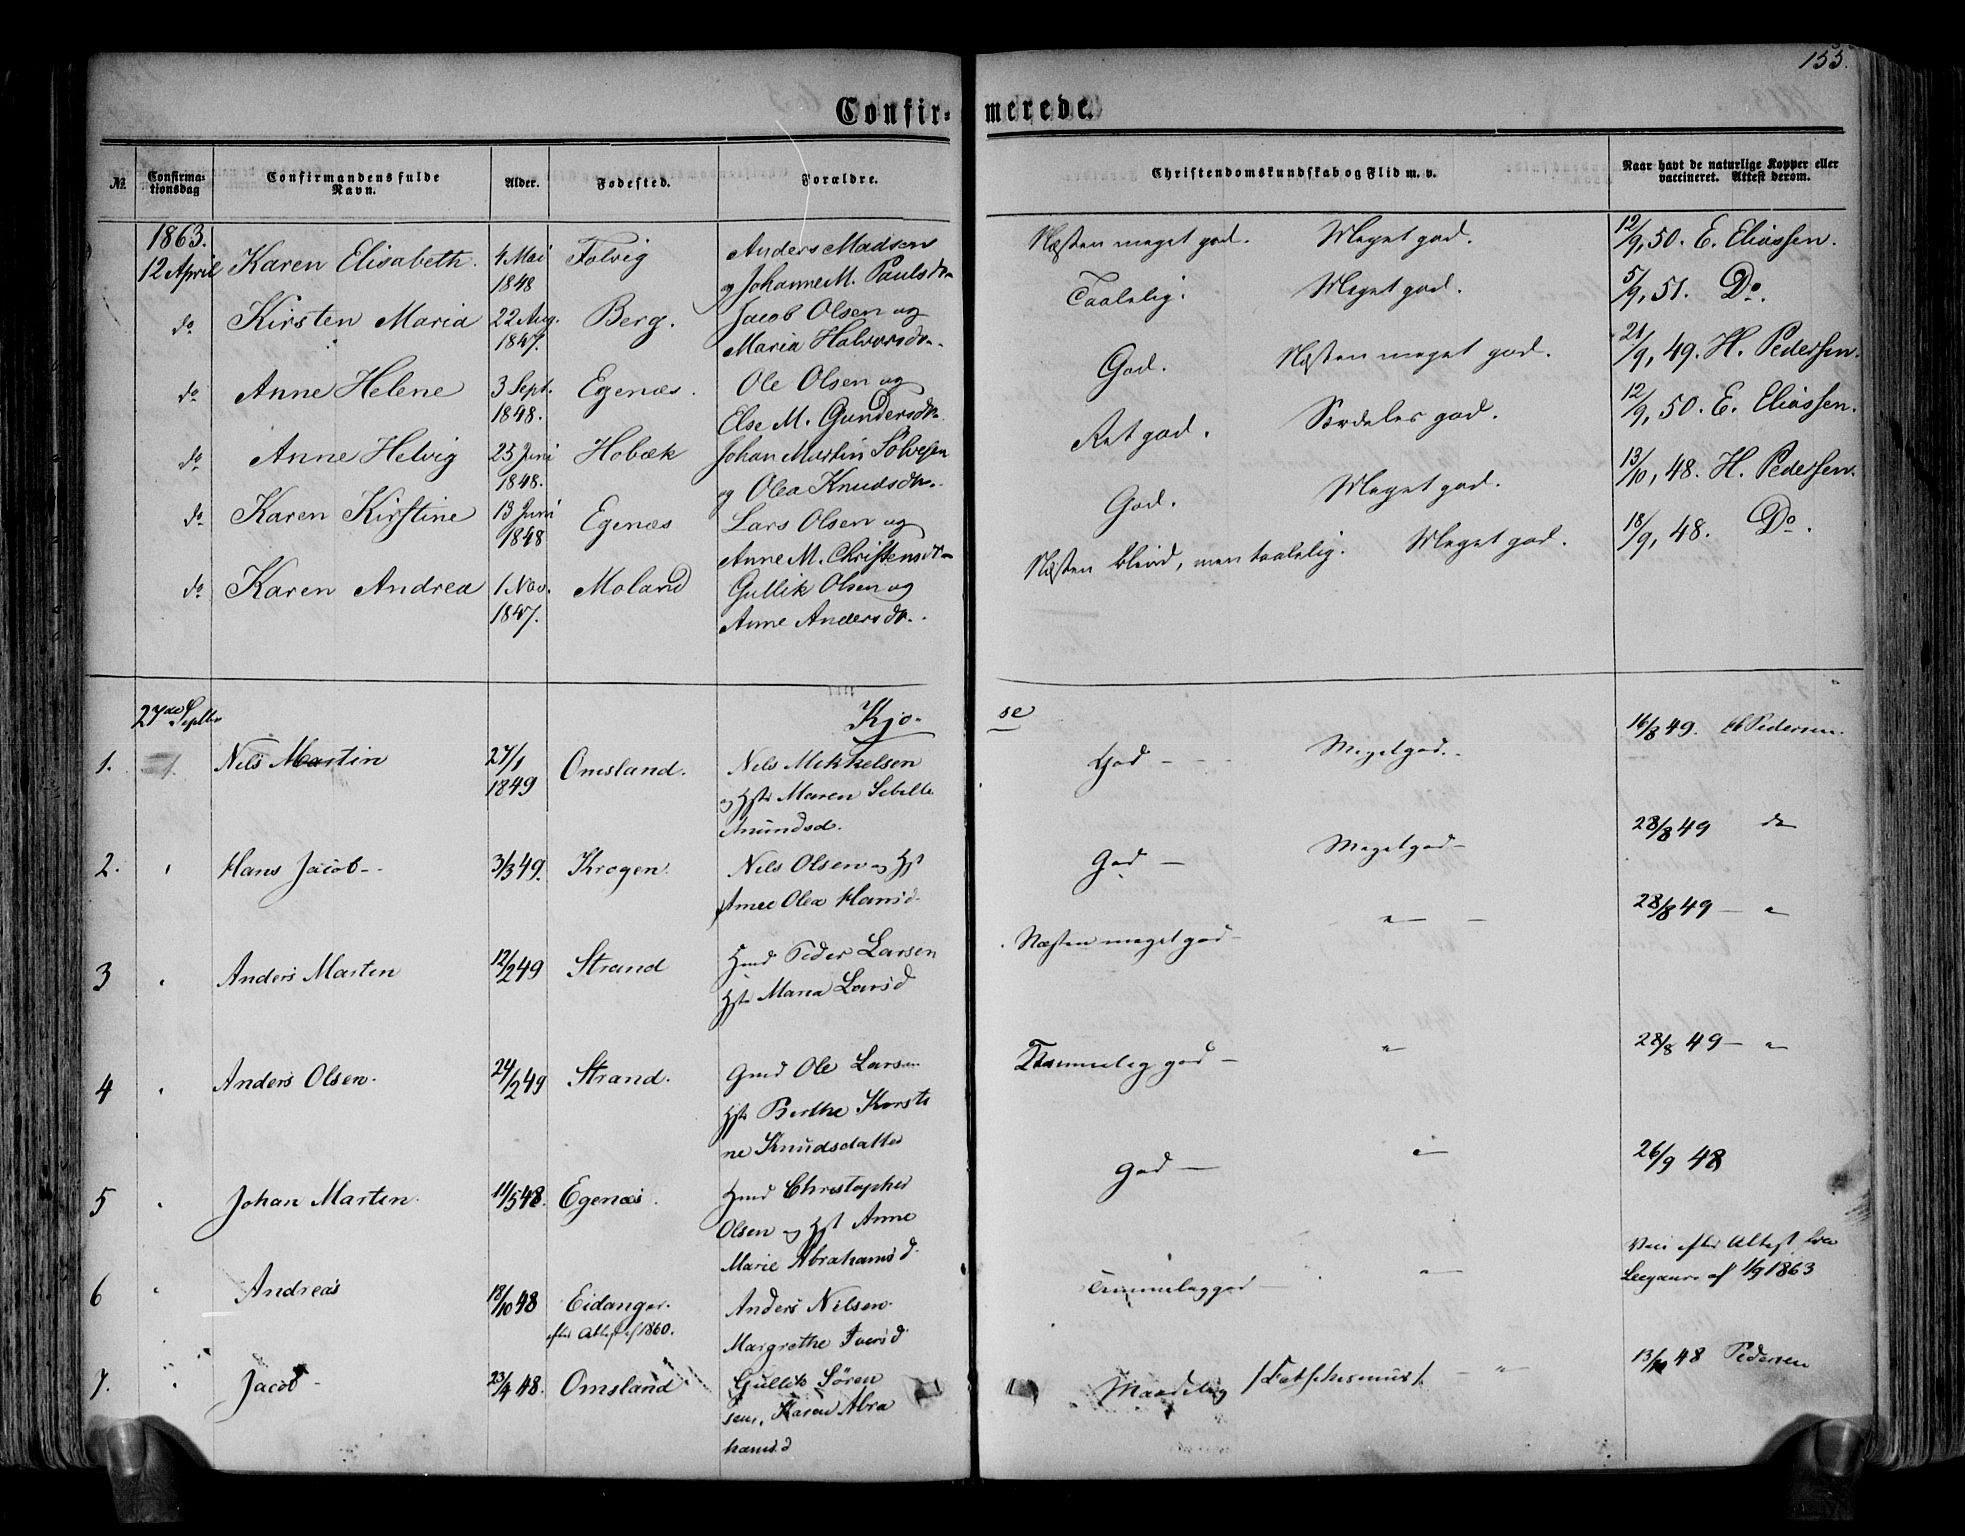 153.
Confirmerede.
No. Confirmationsdag Confirmandens fulde Navn. Alder. Fødested. Forældre. Christendomskundskab og Flid m. v. Naar havt de naturlige Kopper eller vaccineret. Attest derom.
1863.
12 April Karen Elisabeth. 4 Mai 1848 Folvig Anders Madsen og Johanne M. Paulsdr. Næsten meget god. Meget god. 12/9, 50. E. Eliassen.
do Kirsten Maria 22 Aug. 1847. Berg. Jacob Olsen og Maria Halvorsdr. Taalelig. Meget god. 5/9, 51. Do.
do Anne Helene 3 Sept. 1848. Egenæs. Ole Olsen og Else M. Gundersdr. God. Næsten meget god. 21/9, 49. H. Pedersen.
do Anne Helvig 23 Juni 1848. Hobæk Johan Martin Sølvesen og Olea Knudsdr. Ret god. Særdeles god. 12/9, 50. E. Eliassen.
do Karen Kirstine 13 Juni 1848 Egenæs Lars Olsen og Anne M. Christensdr. God. Meget god. 13/10, 48. H. Pedersen.
do Karen Andrea 1 Nov. 1847. Moland Gullik Olsen og Anne Andersdr. Næsten blind, men taalelig. Meget god. 18/9, 48. Do.
27de Septbr Kjøse
1. Nils Martin 27/1 1849 Omsland. Nils Mikkelsen og Hst Maren Sebille Anundsd. God - Meget god. 16/8 49. H Pedersen.
2. " Hans Jacob - 3/3 49. Krogen. Nils Olsen og Hst Anne Olea Hansd. God - Meget god - 28/8 49 do
3 " Anders Marten 12/2 49 Strand Hmd Peder Larsen Hst Maria Larsd Næsten meget god - " - 28/8 49 - "
4 " Anders Olsen. 24/2 49 Strand. Gmd Ole Larsen Hst Berthe Kirstine Knudsdatter Temmelig god - " 28/8 49 - "
5 " Johan Marten. 11/5 48. Egenæs. Hmd Christopher Olsen og Hst Anne Marie Abrahamsd. God - " 26/9 48
6 " Andreas 18/10 48 Eidanger. efter Attest af 1860. Anders Nilsen. Margrethe Iversd Temmelig god - " - efter Attest fra af 1/9 1863
7. " Jacob - 23/4 48. Omsland Gullik Sörensen, Karen Abrahamsd Maadelig " 13/10 48 Pedersen